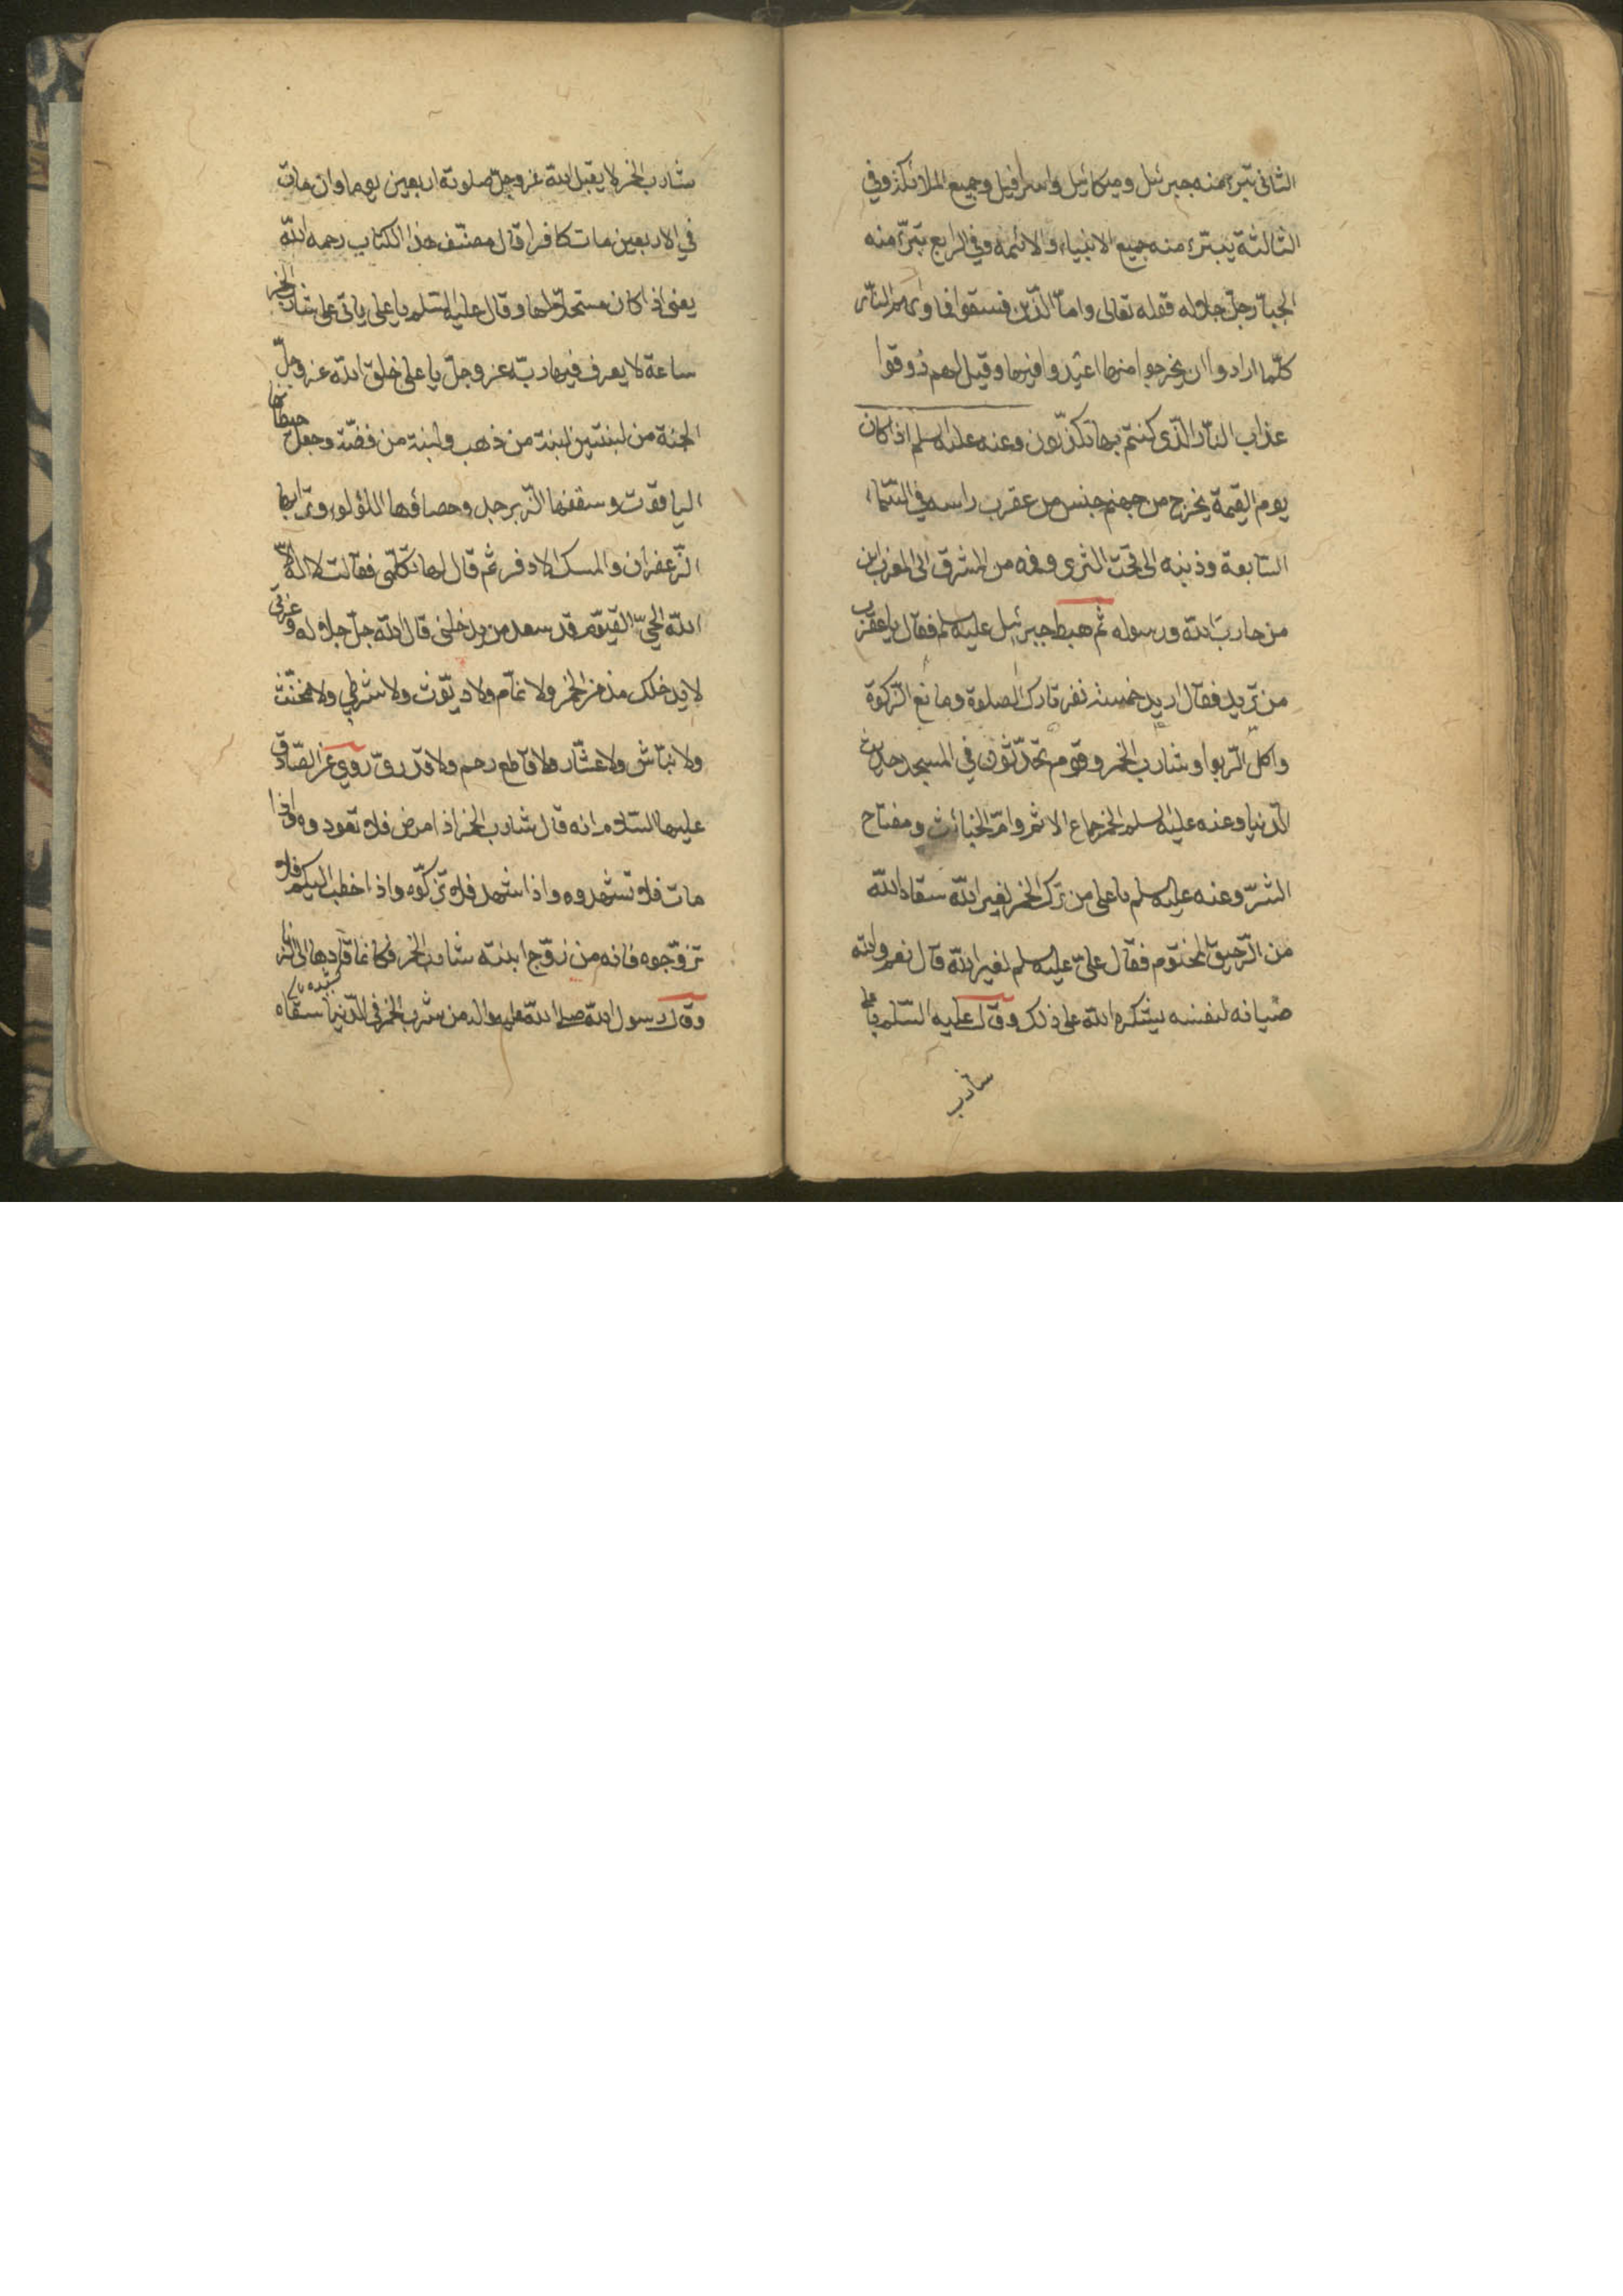 الثانى تبرء منه جبرئيل وميكائيل واسرافيل وجميع الملائكة وفي
الثالثة يتبرء منه جميع الانبياء والائمة وفي الرابع تبرء منه
الجبار جل جلاله قوله تعالى واما الذين فسقوا فماويهم النار
كلما ارادوا ان يخرجوا منها اعيدوا فيها وقيل لهم ذوقوا
عذاب النار الذى كنتم بها تكذبون وعنه عليه السلم اذا كان
يوم القيمة يخرج من جهنم جنس من عقرب راسه في السماء
السابعة وذنبه الى تحت الثرى وفمه من المشرق الى المغرب اين
من حارب الله ورسوله ثم هبط جبرئيل عليه السلم فقال يا عقرب
من تريد فقال اريد خمسة نفر تارك الصلوة ومانع الزكوة
واكل الربوا وشارب الخمر وقوم يحدثون في المسجد حديث
الدنيا وعنه عليه السلم الخمر جماع الاثم وام الخبائث ومفتاح
الشر وعنه عليه السلم يا على من ترك الخمر لغير الله سقاه الله
من الرحيق المختوم فقال على عليه السلم لغير الله قال نعم والله
صيانه لنفسه يشكره الله على ذلك وقال عليه السلم يا على
شارب
شارب الخمر لا يقبل الله عز وجل صلوته اربعين يوما وان مات
في الاربعين مات كافرا قال مصنف هذا الكتاب رحمه الله
يعنى اذا كان مستحلا لها وقال عليه السلم يا على ياتى على شارب الخمر
ساعة لا يعرف فيها ربه عز وجل يا على خلق الله عز وجل
الجنة من لبنتين لبنة من ذهب ولبنة من فضة وجعل حيطانها
الياقوت وسقفها الزبرجد وحصاؤها اللؤلؤ وترابها
الزعفران والمسك الاذفر ثم قال لها تكلمى فقالت لا اله الا
الله الحي القيوم قد سعد من يدخلنى قال الله جل جلاله وعزتى
لا يدخلك مدمن الخمر ولا نمام ولا ديوث ولا شرطي ولا مخنث
ولا نباش ولا عشار ولا قاطع رحم ولا قدرى روي عن الصادق
عليها السلام انه قال شارب الخمر اذا مرض فلا تعودوه واذا
مات فلا تشهدوه واذا شهد فلا تزكوه واذا خطب اليكم فلا
تزوجوه فانه من زوج ابنته شارب الخمر فكانما قادها الى الزنا
وقال رسول الله صلى الله عليه واله من شرب الخمر في الدنيا سقاه